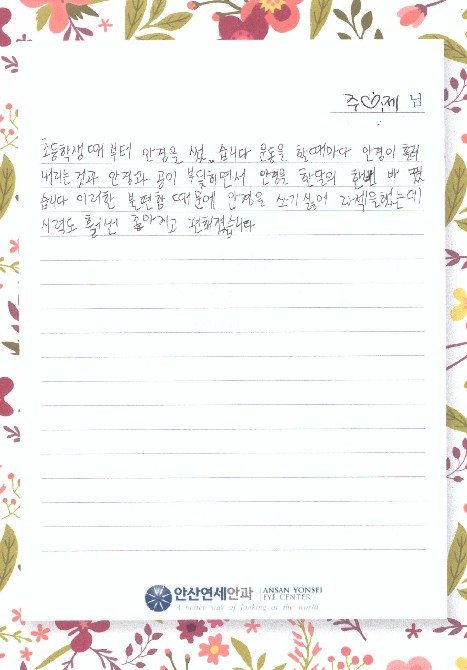 주♡제 님
초등학생때부터 안경을 썼습니다 운동을 할때마다 안경이 흘러
내리는 것과 안경과 공이 부딪히면서 안경을 한달의 한번 바꿨
습니다 이러한 불편함 때문에 안경을 쓰기싫어 라섹을했는데
시력도 훨씬 좋아지고 편해졌습니다
안산연세안과 ANSAN YONSEI
EYE CENTER
A better way of looking at the world